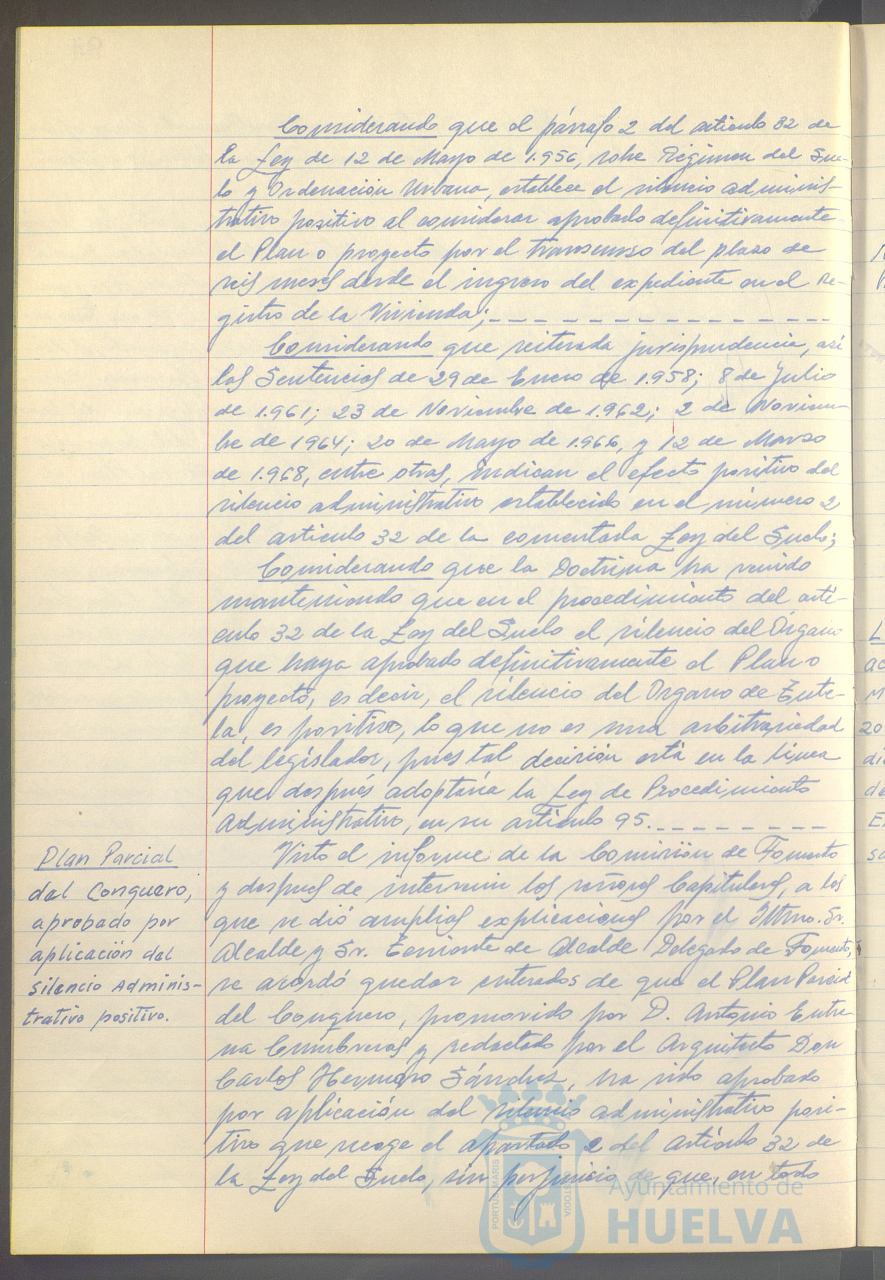 Considerando que el párrafo 2 del artículo 32 de
la Ley de 12 de Mayo de 1.956, sobre Régimen del Sue-
lo y Ordenación Urbana, establece el silencio adminis-
trativo positivo al considerar aprobado definitivamente
el Plan o proyecto por el transcurso del plazo de
seis meses desde el ingreso del expediente en el Re-
gistro de la Vivienda;
Considerando que reiterada jurisprudencia, así
las Sentencias de 29 de Enero de 1.958; 8 de Julio
de 1.961; 23 de Noviembre de 1.962; 2 de Noviem-
bre de 1964; 20 de Mayo de 1.966, y 12 de Marzo
de 1.968, entre otras, indican el efecto positivo del
silencio administrativo establecido en el número 2
del artículo 32 de la comentada Ley del Suelo;
Considerando que la Doctrina ha venido
manteniendo que en el procedimiento del artí-
culo 32 de la Ley del Suelo el silencio del Órgano
que haya aprobado definitivamente el Plan o
proyecto, es decir, el silencio del Organo de Tute-
la, es positivo, lo que no es una arbitrariedad
del legislador, pues tal decisión está en la línea
que después adoptaría la Ley de Procedimiento
Administrativo, en su artículo 95.
Plan Parcial
del Conquero,
aprobado por
aplicación del
silencio Adminis-
trativo positivo.
Visto el informe de la Comisión de Fomento
y despues de intervenir los señores Capitulares, a los
que se dió amplias explicaciones por el Iltmo. Sr.
Alcalde y Sr. Teniente de Alcalde Delegado de Fomento,
se acordó quedar enterados de que el Plan Parcial
del Conquero, promovido por D. Antonio Entre-
na Cumbreras y redactado por el Arquitecto Don
Carlos Hermoso Sánchez, ha sido aprobado
por aplicación del silencio administrativo posi-
tivo que recoge el apartado 2 del Artículo 32 de
la Ley del Suelo, sin perjuicio de que, en todo
PORTUS MARIS
CUSTODIA
Ayuntamiento de
HUELVA